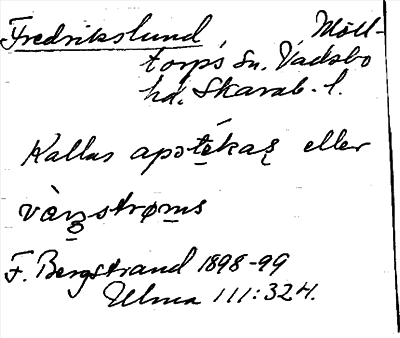 Fredrikslund, Möll-
torps sn. Vadsbo
hd. Skarab. l.
Kallas apotékaʂ eller
vàŋstrøms
F. Bergstrand 1898-99
Ulma 111:324.